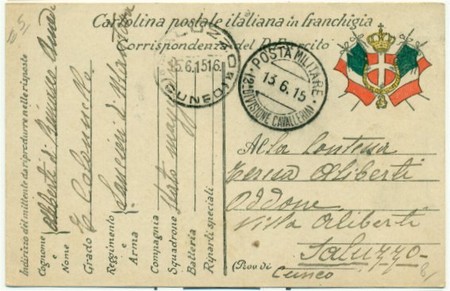 Cartolina postale italiana in franchigia
Corrispondenza del R. Esercito
15.6.15 16
(CUNEO)
POSTA MILITARE
13.6.15
DIVISIONE CAVALLERIA
Indirizzo del mittente da riprodurre nelle risposte
Cognome e Nome
Grado T. Colonnello
Reggimento e Arma Lancieri di
Compagnia
Squadrone Stato magg
Batteria
Riparti speciali
Alla Contessa
Teresa Aliberti
Oddone
Villa Aliberti
Saluzzo
(Prov. di
Cuneo